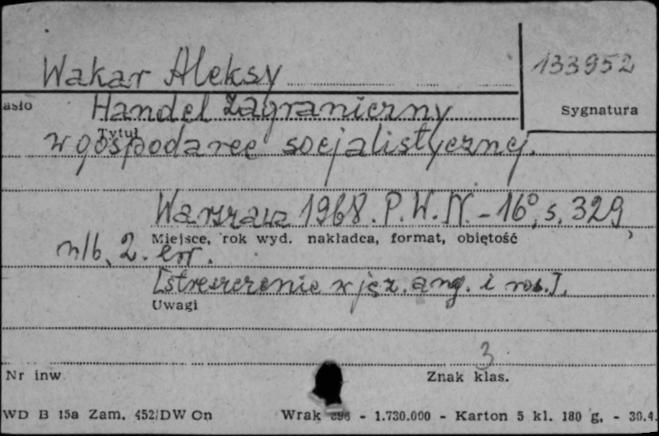 Wakar Aleksy
133952
asło
Sygnatura
Handel zagraniczny
Tytuł
w gospodarce socjalistycznej.
Warszawa 1968. P.W.N. - 16°, s. 329,
Miejsce, rok wyd. nakładca, format, objętość
nlb. 2. err.
[streszczenie w jęz. ang. i ros.].
Uwagi
3
Nr inw.
Znak klas.
WD B 15a Zam. 452/DW On Wrak 696 - 1.730.000 - Karton 5 kl. 180 g. - 30.4.